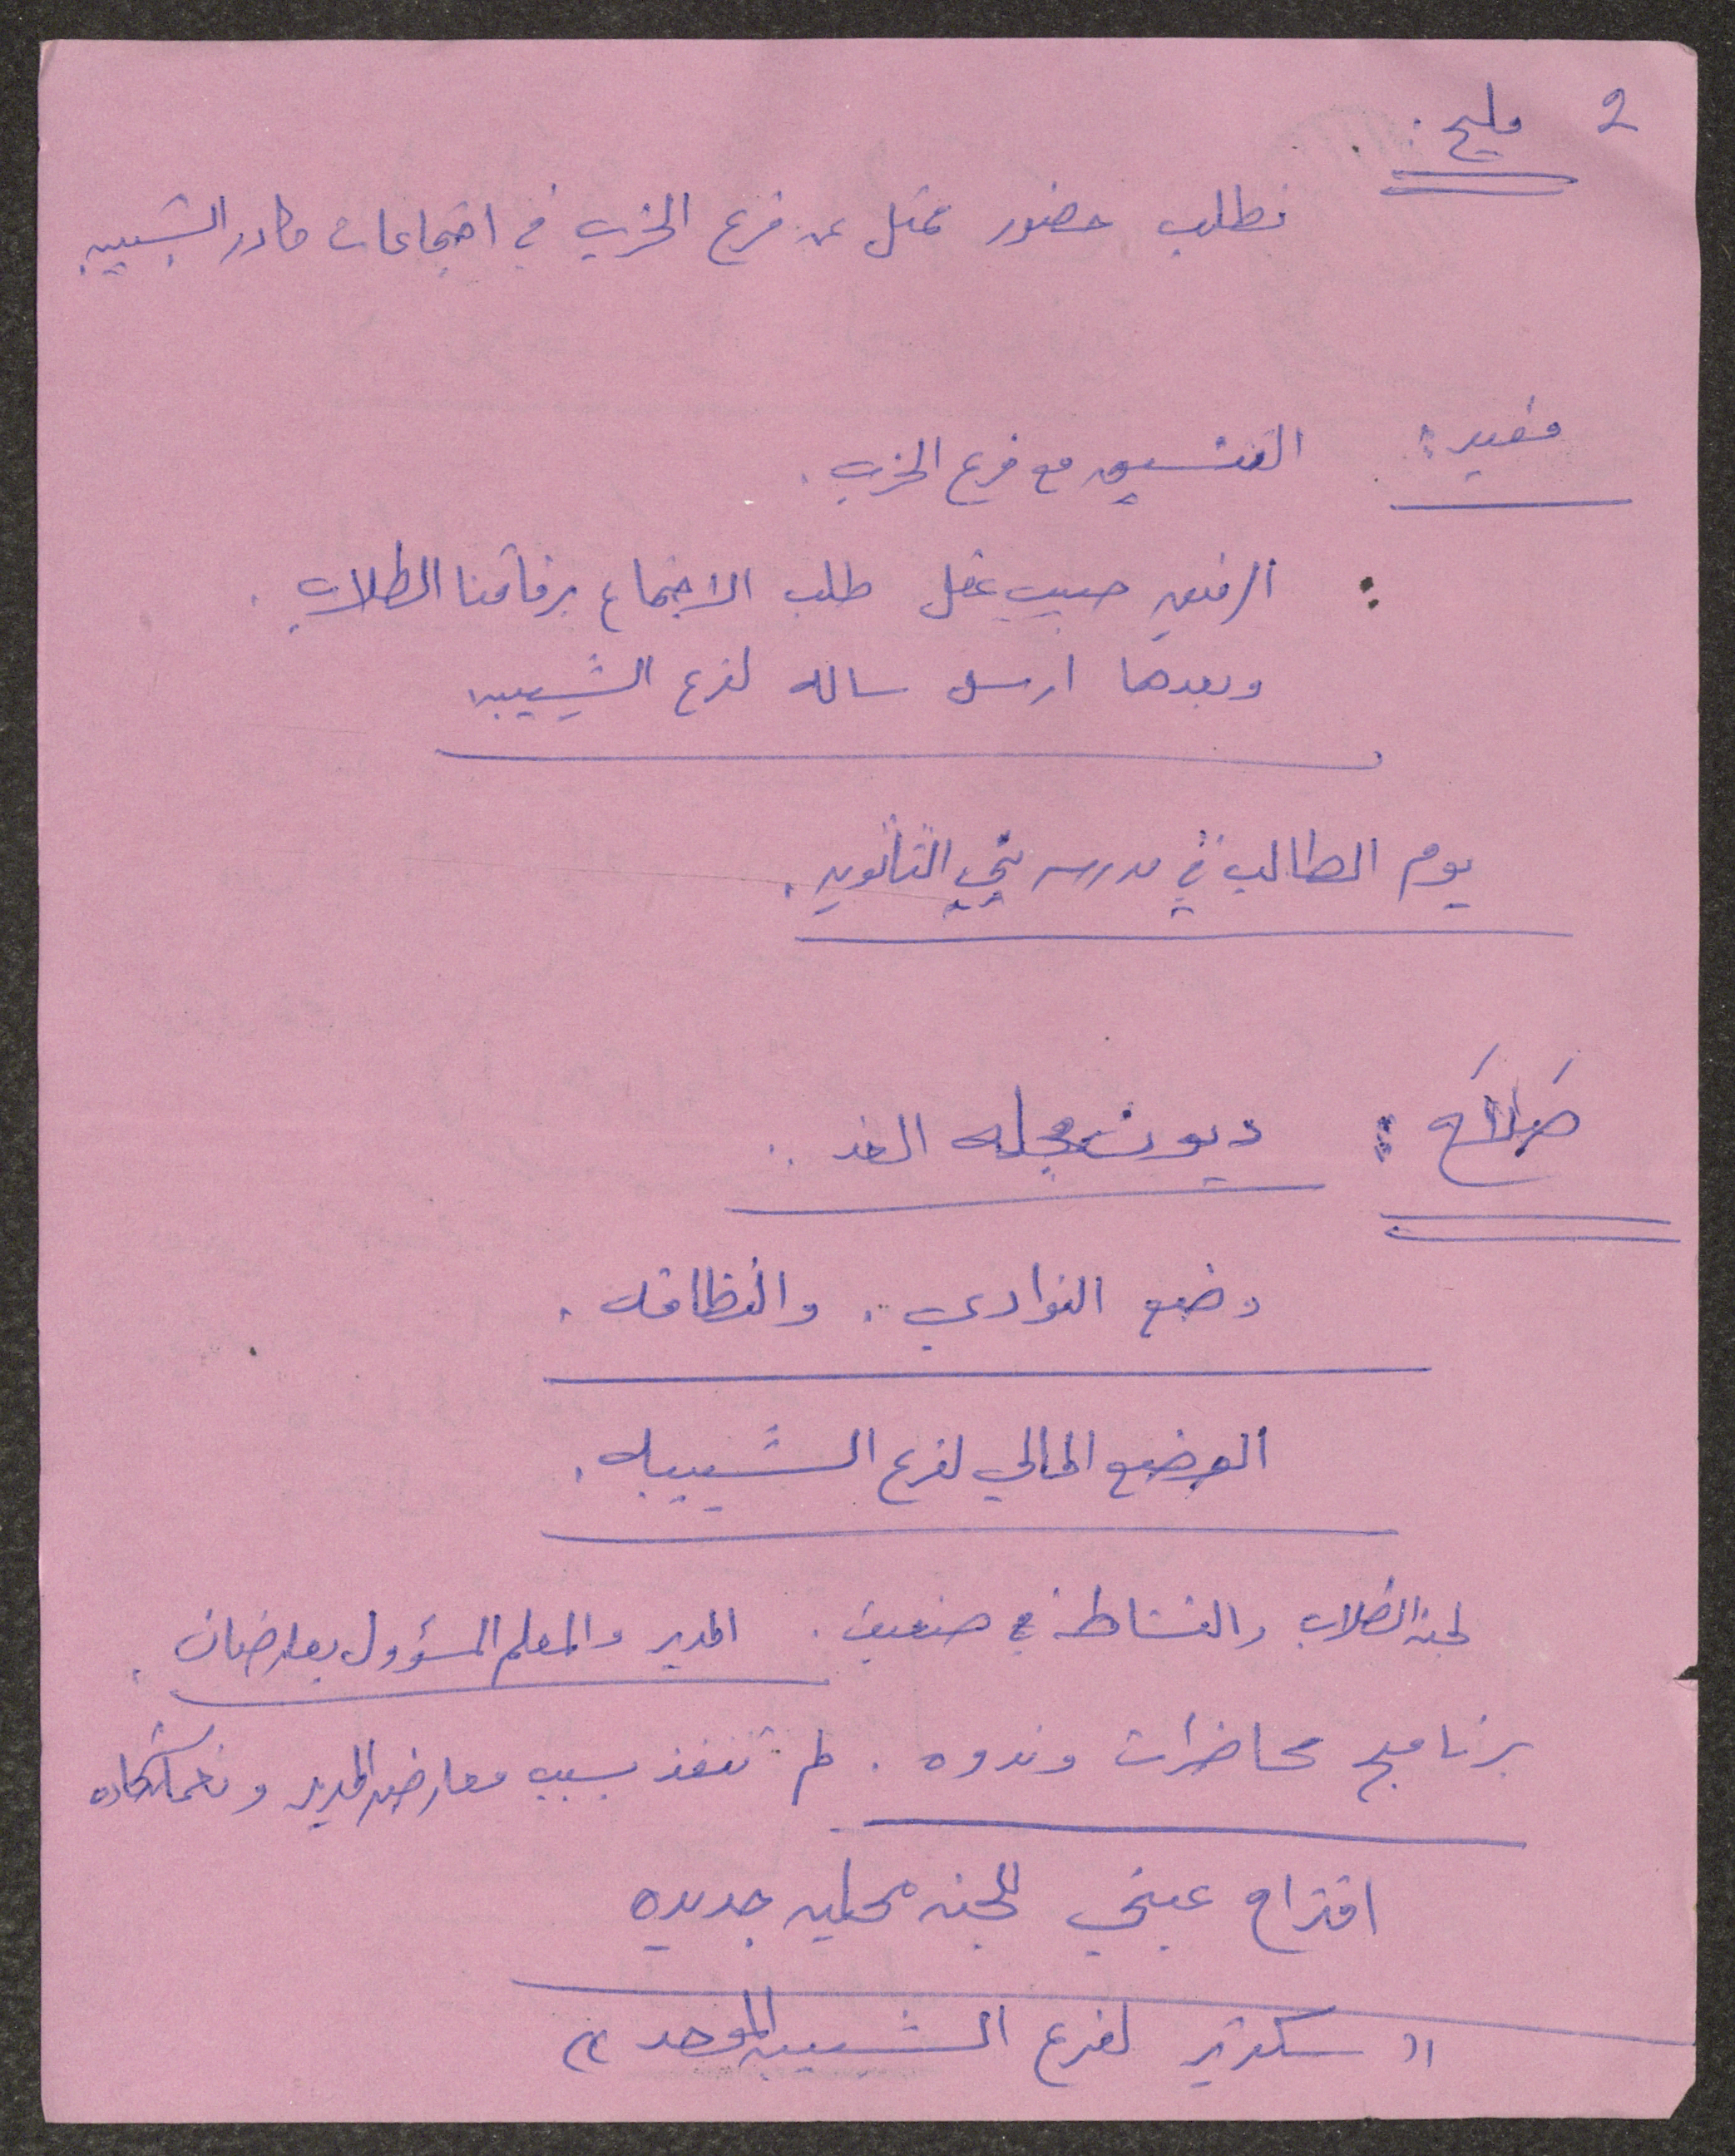 2 مليح:
نطلب حضور ممثل عن فرع الحزب في اجتماعات كادر الشبيبه
مفيد: التنسيق مع فرع الحزب.
: الرفيق حبيب عقل طلب الاجتماع برفاقنا الطلاب.
وبعدها ارسل ساله لفرع الشبيبه
يوم الطالب في مدرسه الثانويه.
صلاح: ديون مجله الغد..
وضع النوادي. والنظافه.
الوضع المالي لفرع الشبيبه.
لجنة الطلاب والنشاط ضعيف. المدير والمعلم المسؤول يعارضان.
برنامج محاضرات وندوه. لم تنفذ بسبب معارضه المدير
اقتراح عيني للجنه محليه جديده
"سكرتير لفرع الشبيبه الموحد"